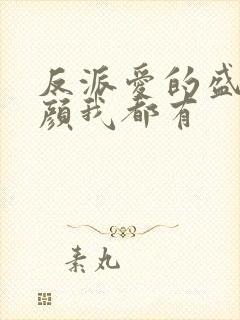 反派爱的盛
颜我都有
素丸